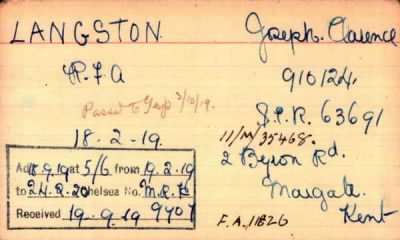 LANGSTON. Joseph. Clarence
R.F.A 910124.
Passed to 3/10/19.
S.P.R. 63691
18.2.19. 11/M/35468.
2 Byron Rd.
Margate.
Kent
Ad 18.9.19 at 5/6 from 19.2.19
to 24.2.20 Chelsea No. M.R.F.
Received 19.9.19 9707
F.A. 11826